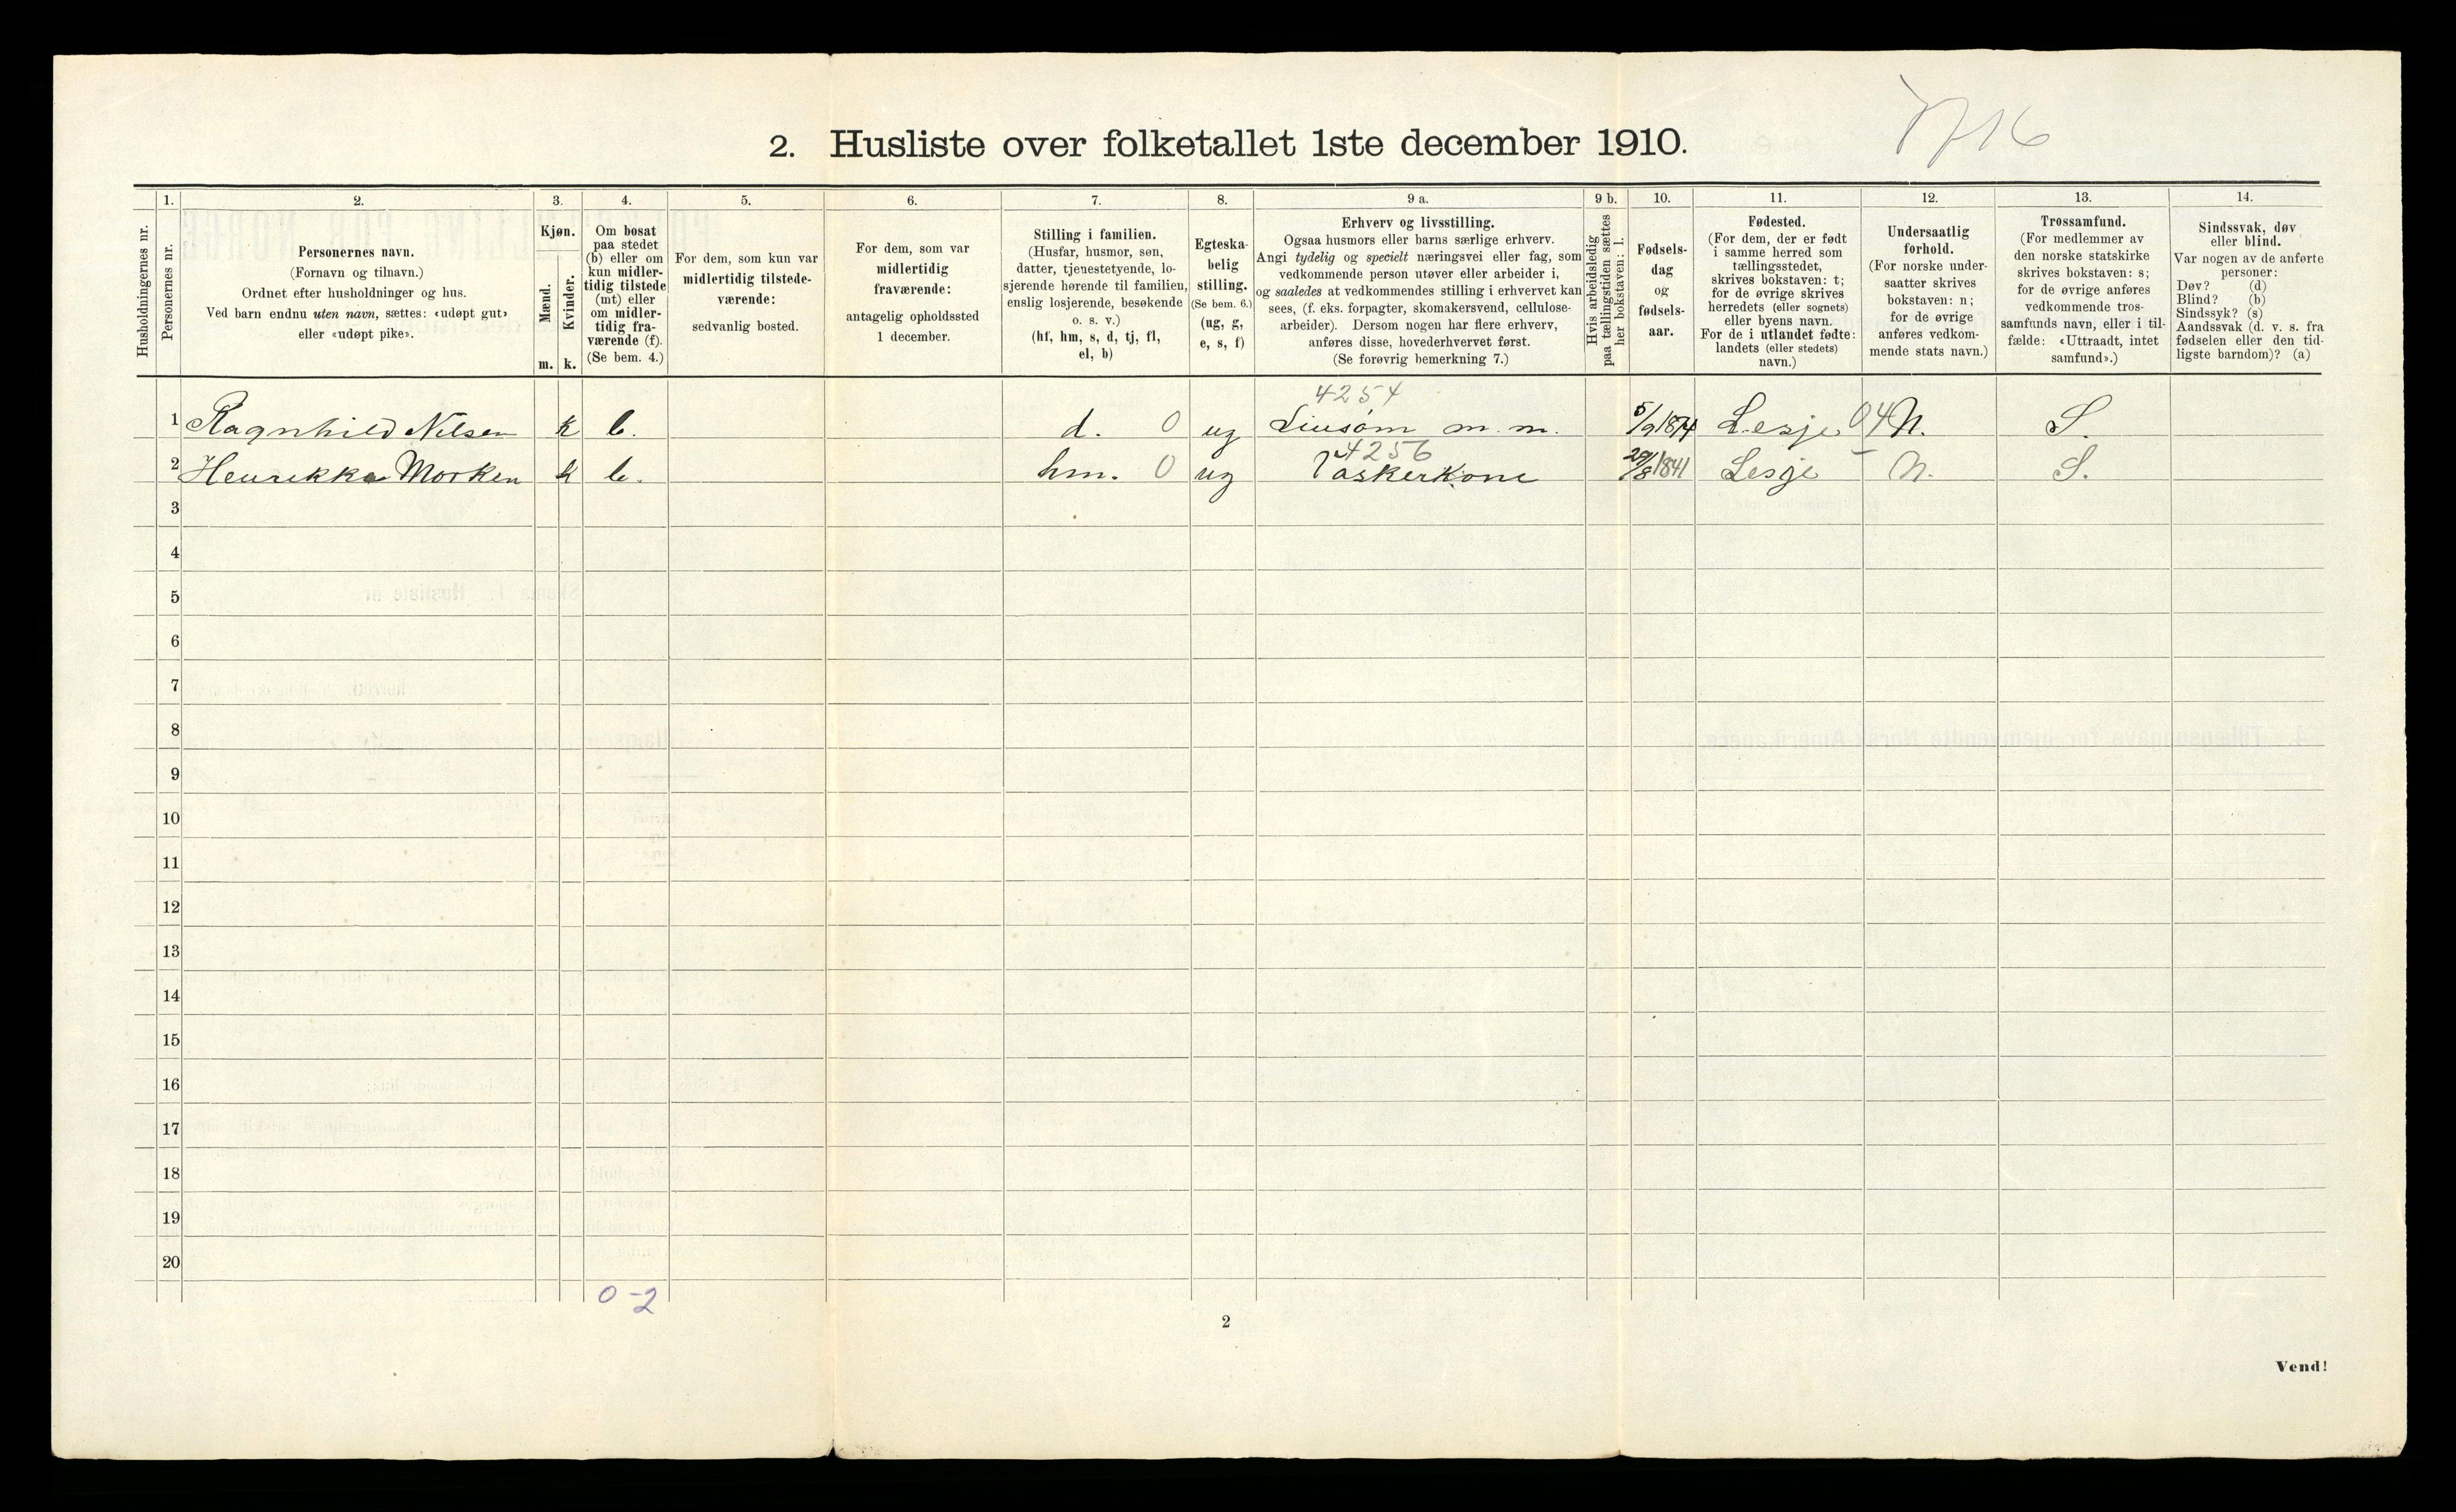 1716
2. Husliste over folketallet 1ste december 1910.
Husholdningernes nr.
1.
Personernes nr.
2.
Personernes navn.
(Fornavn og tilnavn.)
Ordnet efter husholdninger og hus.
Ved barn endnu uten navn, sættes: «udøpt gut»
eller «udøpt pike».
3.
Kjøn.
Mænd.
Kvinder.
m. k.
4.
Om bosat
paa stedet
(b) eller om
kun midler-
tidig tilstede
(mt) eller
om midler-
tidig fra-
værende (f).
(Se bem. 4.)
5.
For dem, som kun var
midlertidig tilstede-
værende:
sedvanlig bosted.
6.
For dem, som var
midlertidig
fraværende:
antagelig opholdssted
1 december.
7.
Stilling i familien.
(Husfar, husmor, søn,
datter, tjenestetyende, lo-
sjerende hørende til familien,
enslig losjerende, besøkende
o. s. v.)
(hf, hm, s, d, tj, fl,
el, b)
8.
Egteska-
belig
stilling.
(Se bem. 6.)
(ug, g,
e, s, f)
9 a.
Erhverv og livsstilling.
Ogsaa husmors eller barns særlige erhverv.
Angi tydelig og specielt næringsvei eller fag, som
vedkommende person utøver eller arbeider i,
og saaledes at vedkommendes stilling i erhvervet kan
sees, (f. eks. forpagter, skomakersvend, cellulose-
arbeider). Dersom nogen har flere erhverv,
anføres disse, hovederhvervet først.
(Se forøvrig bemerkning 7.)
9 b.
Hvis arbeidsledig
paa tællingstiden sættes
her bokstaven: l.
10.
Fødsels-
dag
og
fødsels-
aar.
11.
Fødested.
(For dem, der er født
i samme herred som
tællingsstedet,
skrives bokstaven: t;
for de øvrige skrives
herredets (eller sognets)
eller byens navn.
For de i utlandet fødte:
landets (eller stedets)
navn.)
12.
Undersaatlig
forhold.
(For norske under-
saatter skrives
bokstaven: n;
for de øvrige
anføres vedkom-
mende stats navn.)
13.
Trossamfund.
(For medlemmer av
den norske statskirke
skrives bokstaven: s;
for de øvrige anføres
vedkommende tros-
samfunds navn, eller i til-
fælde: «Uttraadt, intet
samfund».)
14.
Sindssvak, døv
eller blind.
Var nogen av de anførte
personer:
Døv? (d)
Blind? (b)
Sindssyk? (s)
Aandssvak (d. v. s. fra
fødselen eller den tid-
ligste barndom)? (a)
4254
1 Ragnhild Nilsen k b. d. 0 ug Linsøm m. m. 5/9 1874 Lesje 04 N. S.
4256
2 Henrikka Morken k b. hm. 0 ug Vaskerkone 29/8 1841 Lesje N. S.
3
4
5
6
7
8
9
10
11
12
13
14
15
16
17
18
19
20
0-2
2
Vend!